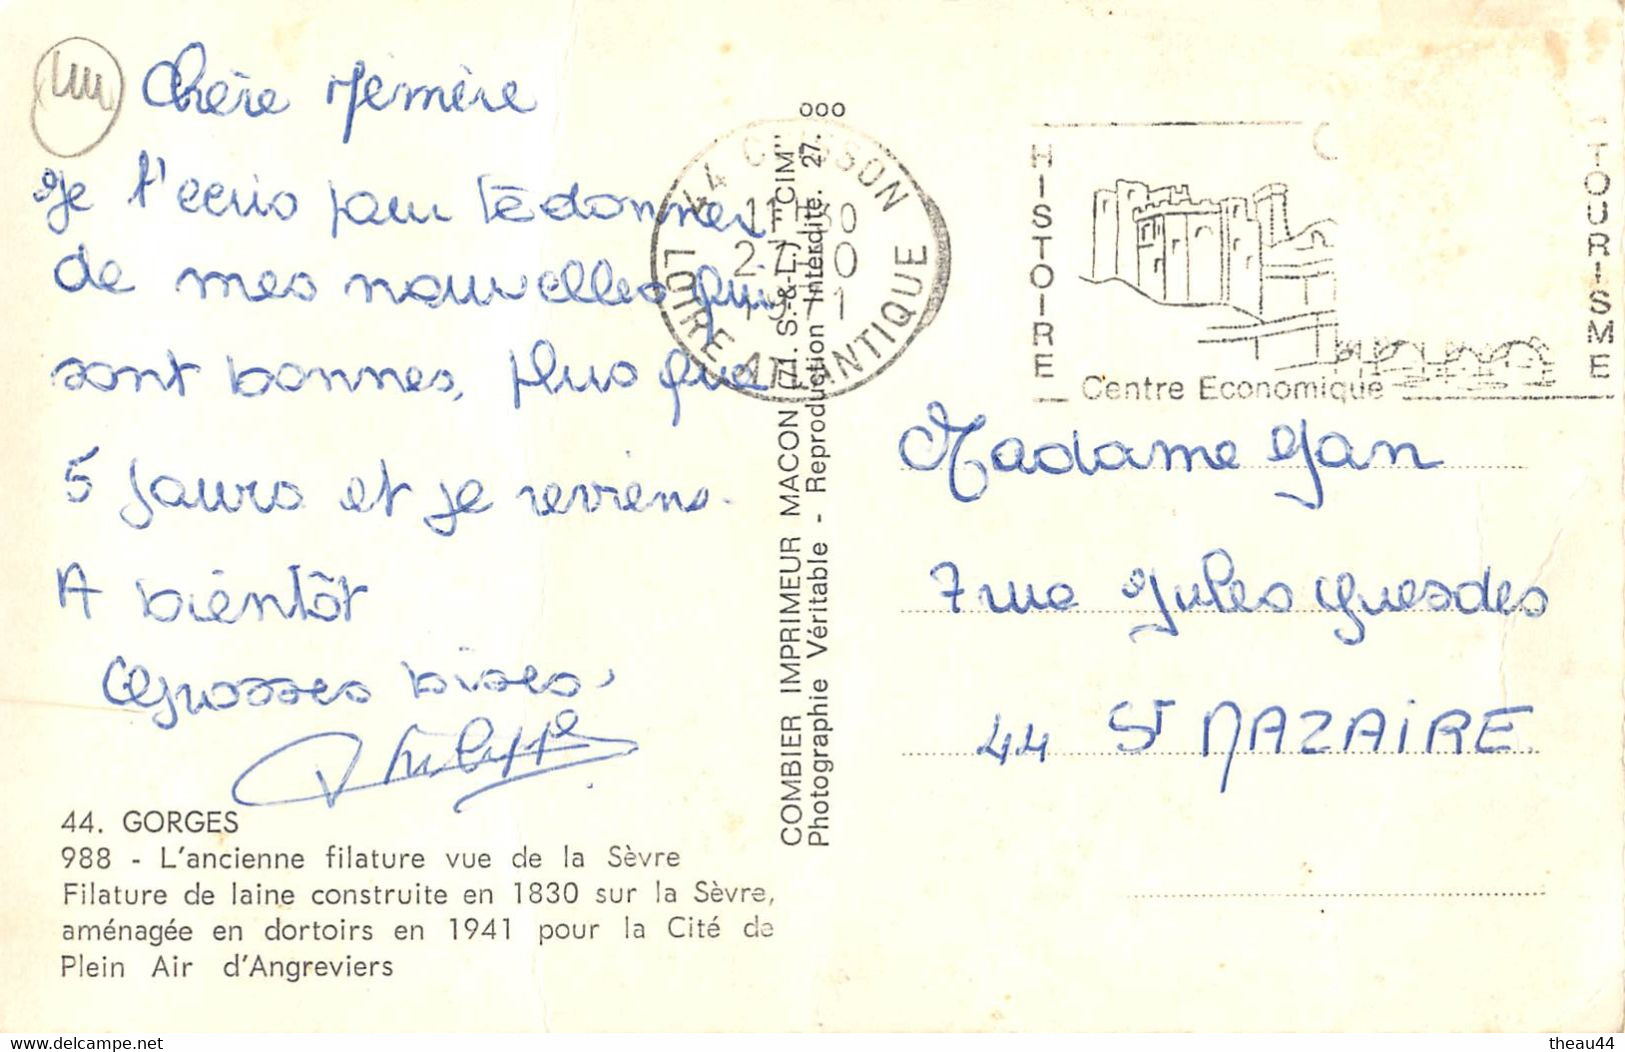 Chère Mémère
Je t'ecris pour te donner
de mes nouvelles qui
sont bonnes, plus que
5 jours et je reviens.
A bientôt
Grosses bises.
Philippe
44. GORGES
988 - L'ancienne filature vue de la Sèvre
Filature de laine construite en 1830 sur la Sèvre,
aménagée en dortoirs en 1941 pour la Cité de
Plein Air d'Angreviers
COMBIER IMPRIMEUR MACON (71. S.-&-L.) "CIM"
Photographie Véritable - Reproduction Interdite. 27.
ooo
44 CLISSON
LOIRE ATLANTIQUE
1971
HISTOIRE
TOURISME
Centre Economique
Madame Jan
7 rue Jules Guesdes
44 St NAZAIRE
delcampe.net
theau44